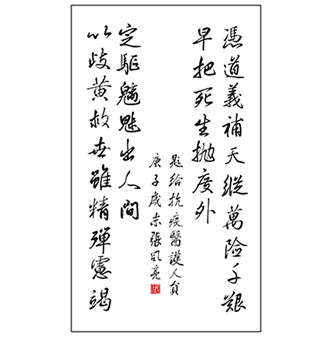 憑道義補天縱萬險千艱
早把死生抛度外
以歧黄救世雖精殫慮竭
定驅魑魅出人間
題給抗疫醫護人員
庚子歲末張凤亮